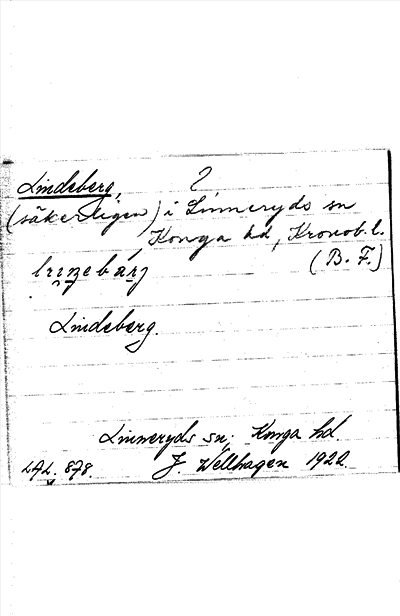 Lindeberg, 2
(säkerligen) i Linneryds sn
Konga hd, Kronob. l.
(B. F.)
Lindeberg.
Linneryds sn; Konga hd.
J. Wellhagen 1922.